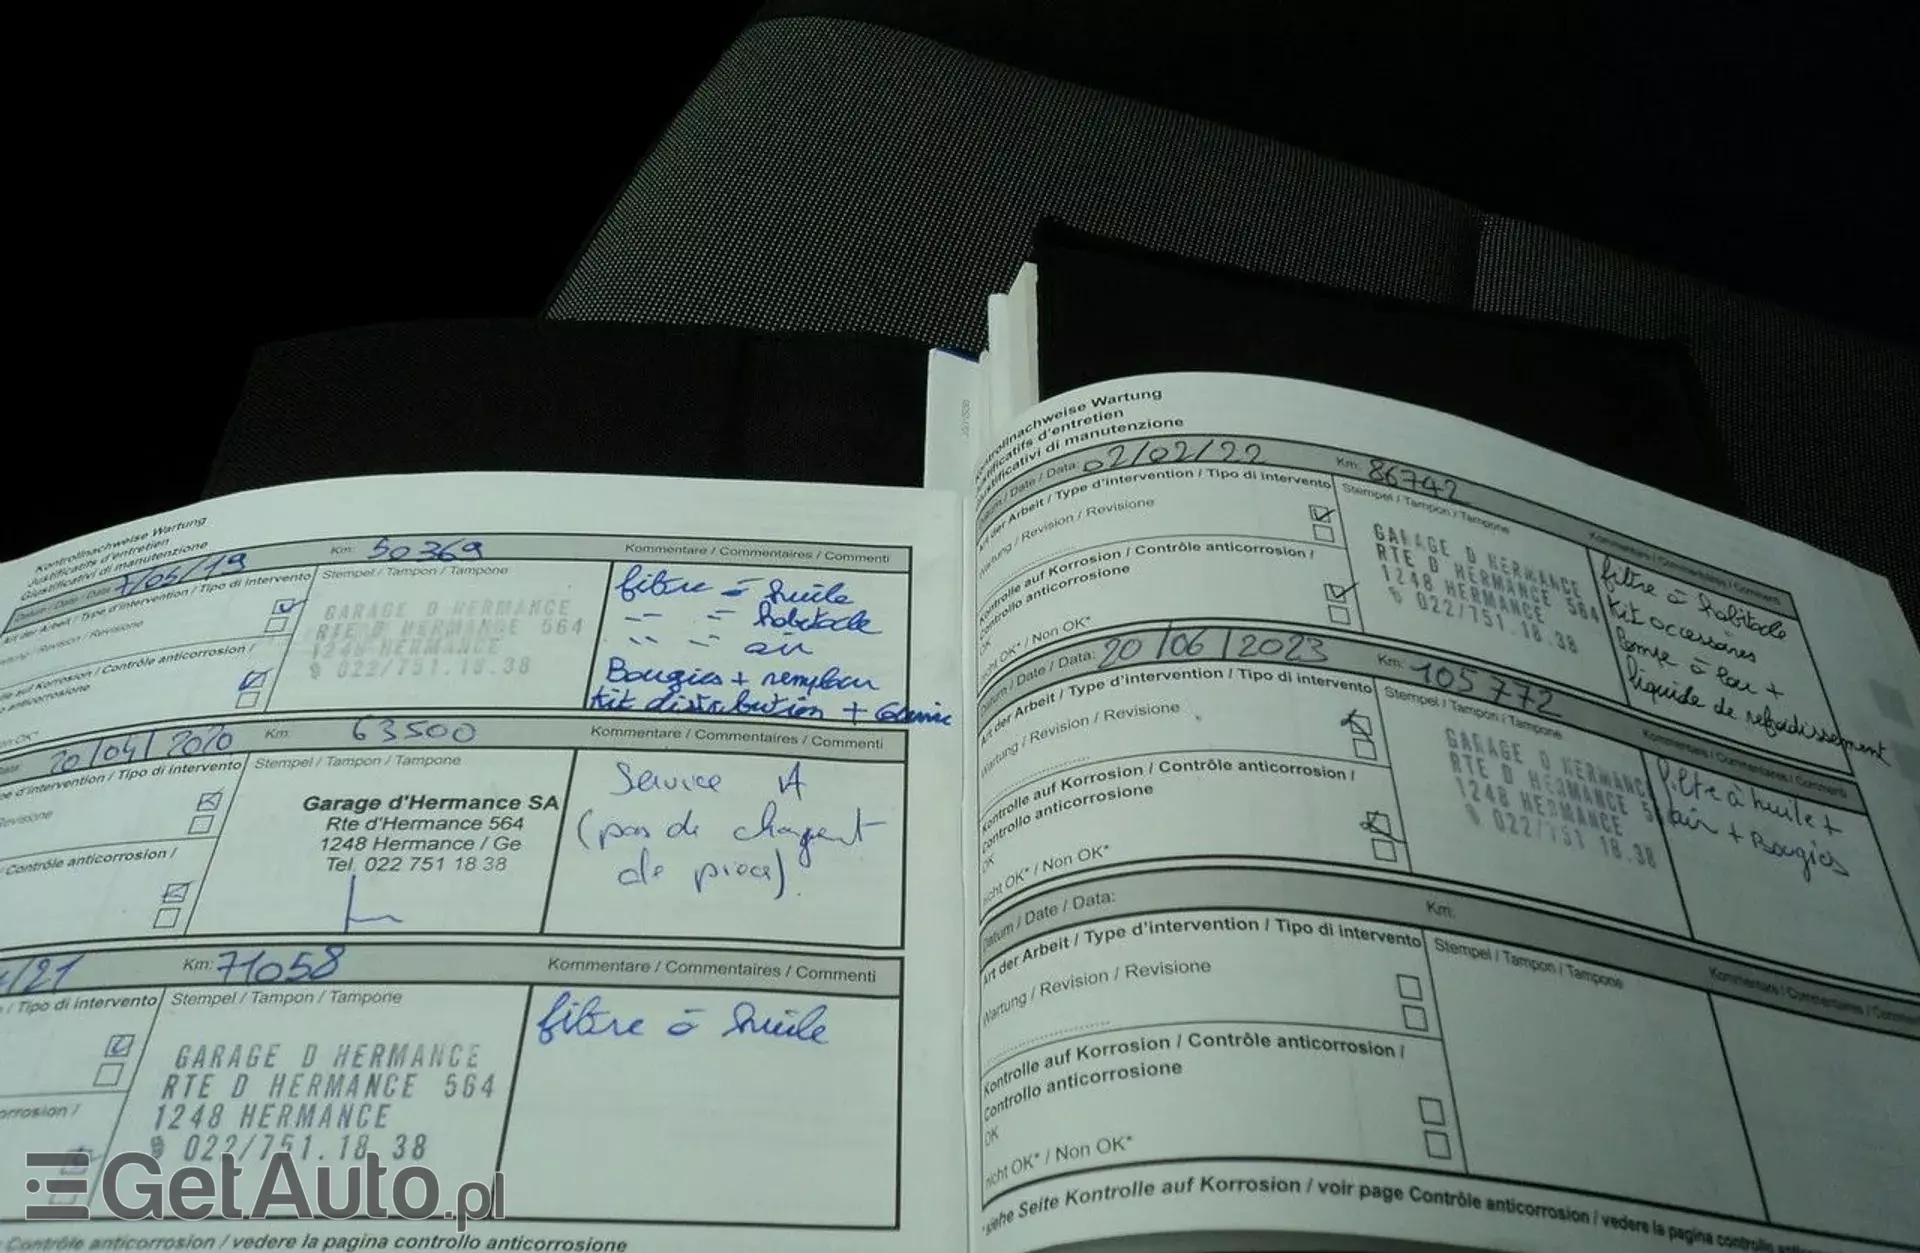 Kontrollnachweise Wartung
Justificatifs d'entretien
Giustificativi di manutenzione
Datum / Date / Data: 7/05/19 Km: 50369 Kommentare / Commentaires / Commenti
Art der Arbeit / Type d'intervention / Tipo di intervento Stempel / Tampon / Tampone
Wartung / Revision / Revisione
Kontrolle auf Korrosion / Contrôle anticorrosion /
anticorrosione
GARAGE D HERMANCE
RTE D HERMANCE 564
1248 HERMANCE
022/751.18.38
filtre à huile
-- -- habitacle
-- -- air
Bougies +
Kit distribution +
20/04/2020 Km: 63500 Kommentare / Commentaires / Commenti
d'intervention / Tipo di intervento Stempel / Tampon / Tampone
Revisione
Contrôle anticorrosion /
Garage d'Hermance SA
Rte d'Hermance 564
1248 Hermance / Ge
Tel. 022 751 18 38
Service A
(pas de
de pièce).
/21 Km: 71058 Kommentare / Commentaires / Commenti
/ Tipo di intervento Stempel / Tampon / Tampone
GARAGE D HERMANCE
RTE D HERMANCE 564
1248 HERMANCE
022/751.18 38
filtre à huile
Contrôle anticorrosion / vedere la pagina controllo anticorrosione
Kontrollnachweise Wartung
Justificatifs d'entretien
Giustificativi di manutenzione
Datum / Date / Data: 02/02/22 Km: 86742 Kommentare / Commentaires / Commenti
Art der Arbeit / Type d'intervention / Tipo di intervento Stempel / Tampon / Tampone
Wartung / Revision / Revisione
Kontrolle auf Korrosion / Contrôle anticorrosion /
Controllo anticorrosione
OK
nicht OK* / Non OK*
GARAGE D HERMANCE
RTE D HERMANCE 564
1248 HERMANCE
022/751.18.38
filtre à habitacle
Kit accessoires
Pompe à eau +
liquide de refroidissement
Datum / Date / Data: 20/06/2023 Km: 105772 Kommentare / Commentaires / Commenti
Art der Arbeit / Type d'intervention / Tipo di intervento Stempel / Tampon / Tampone
Wartung / Revision / Revisione
Kontrolle auf Korrosion / Contrôle anticorrosion /
Controllo anticorrosione
OK
nicht OK* / Non OK*
GARAGE D HERMANCE
RTE D HERMANCE 5
1248 HERMANCE
022/751 18.38
filtre à huile +
air + Bougies
Datum / Date / Data: Km: Kommentare / Commentaires / Commenti
Art der Arbeit / Type d'intervention / Tipo di intervento Stempel / Tampon / Tampone
Wartung / Revision / Revisione
Kontrolle auf Korrosion / Contrôle anticorrosion /
Controllo anticorrosione
OK
nicht OK* / Non OK*
*siehe Seite Kontrolle auf Korrosion / voir page Contrôle anticorrosion / vedere la pagina controllo
GetAuto.pl